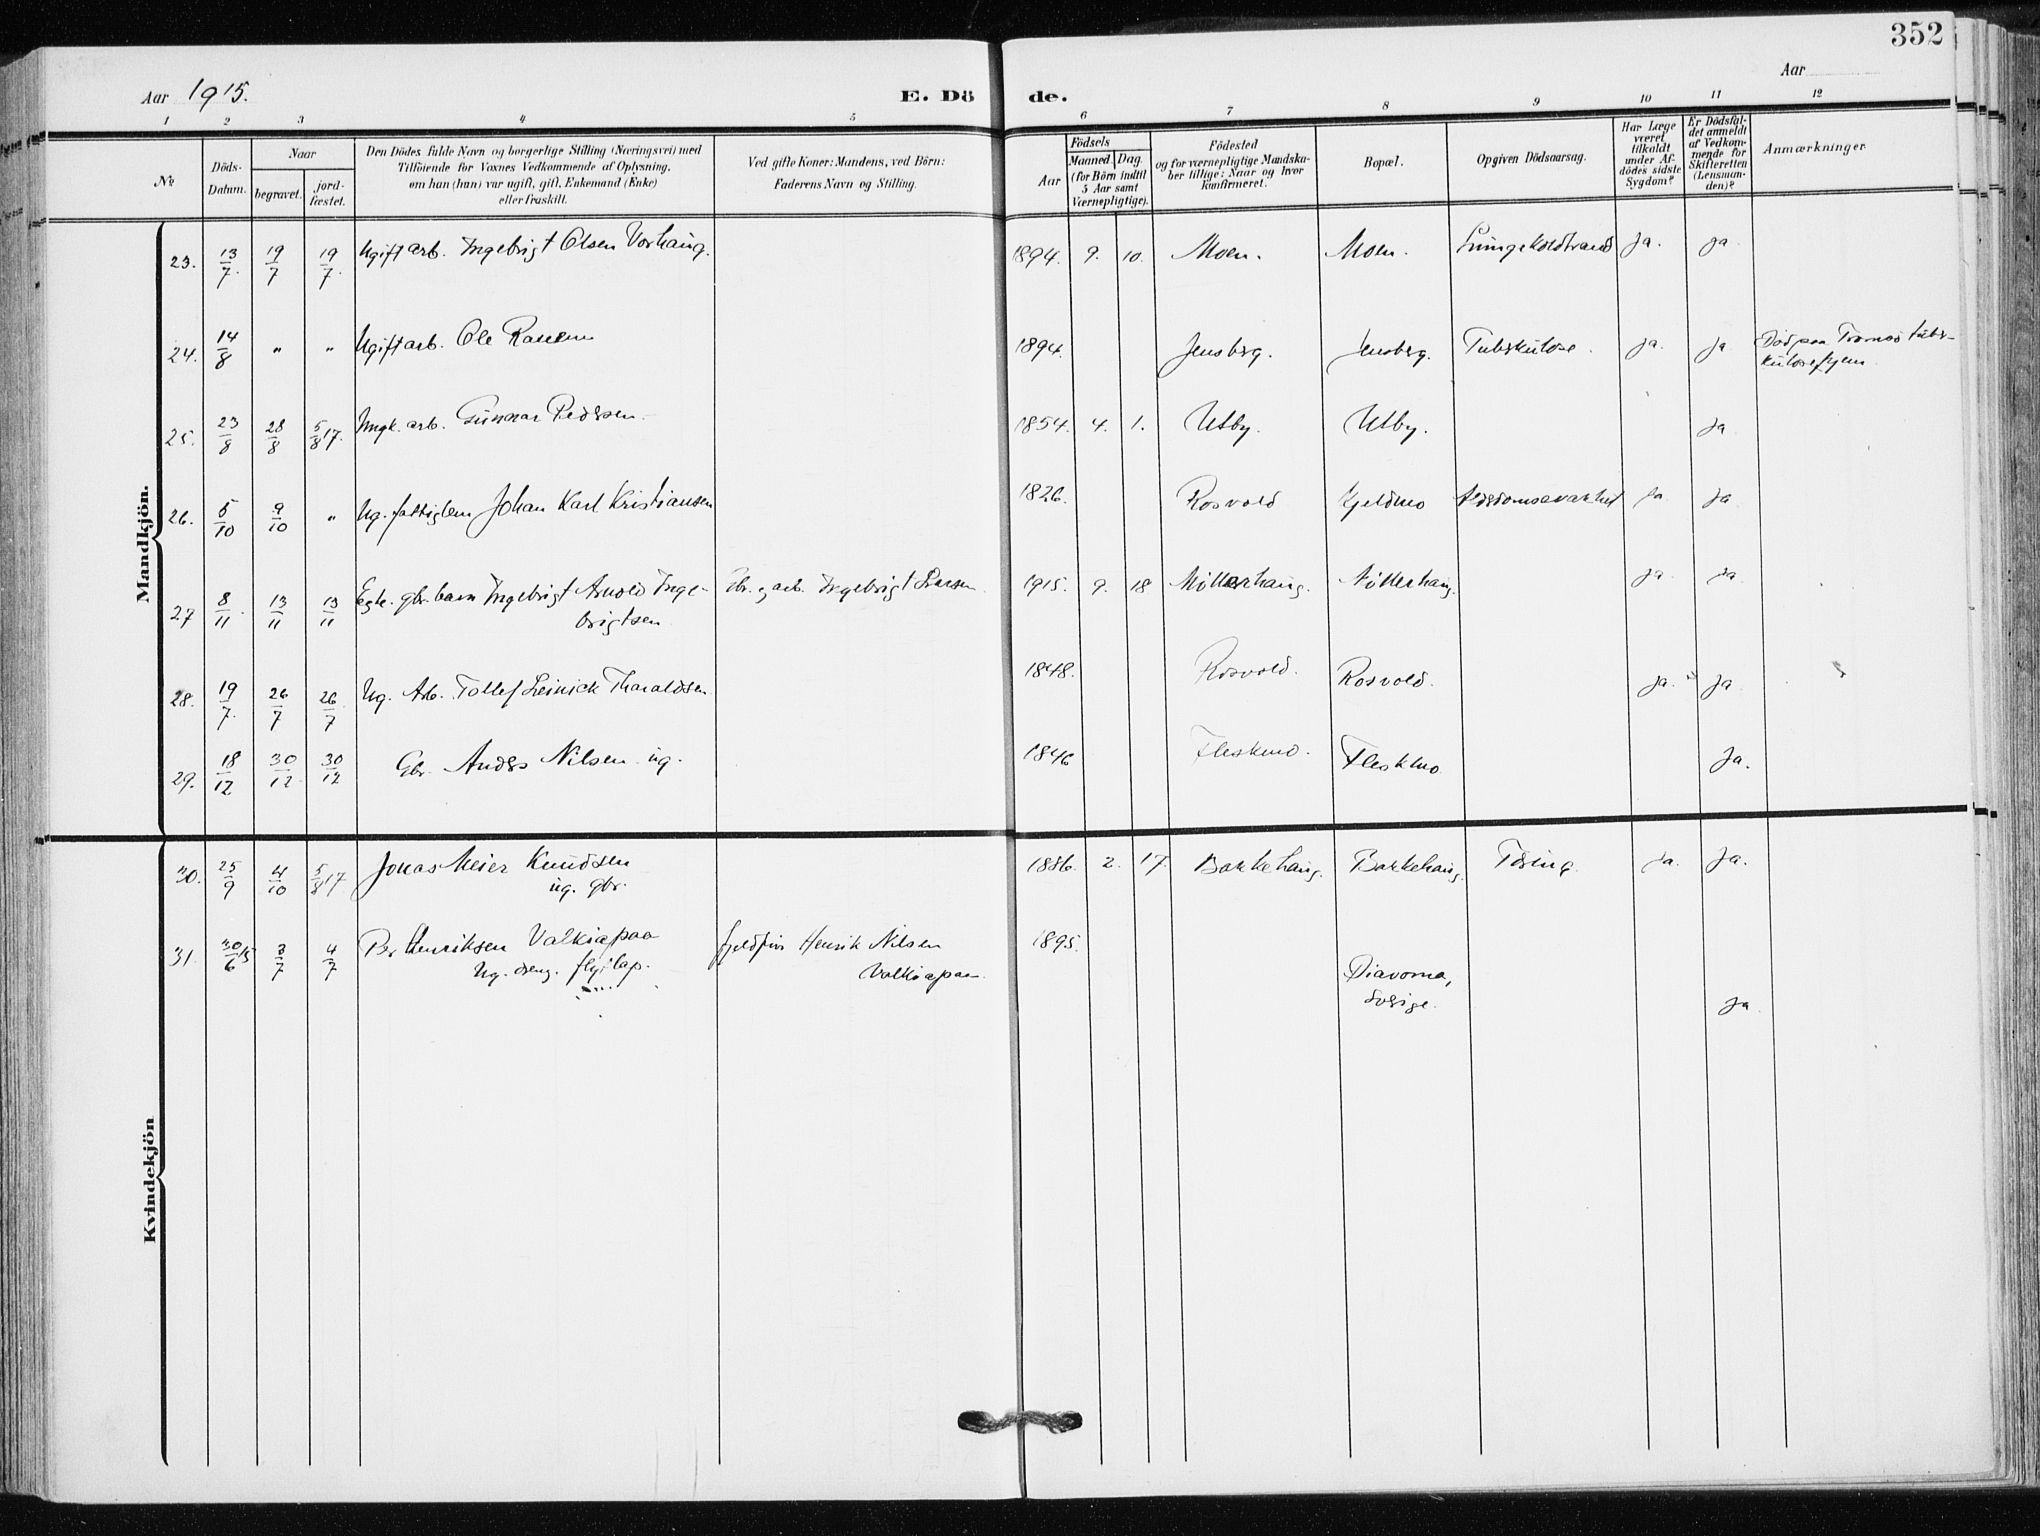 352
Aar 1915.
E. Dö de.
Aar
1 2 3 4 5 6 7 8 9 10 11 12
№
Döds-Datum.
Naar
begravet.
jord-fæstet.
Den Dödes fulde Navn og borgerlige Stilling (Næringsvei) med
Tilföiende for Voxnes Vedkommende af Oplysning,
om han (hun) var ugift, gift, Enkemand (Enke)
eller fraskilt.
Ved gifte Koner: Mandens, ved Börn:
Faderens Navn og Stilling.
Födsels
Aar
Maaned. Dag.
(for Börn indtil
5 Aar samt
Værnepligtige).
Födested
og for værnepligtige Mandska-
ber tillige: Naar og hvor
konfirmeret.
Bopæl.
Opgiven Dödsaarsag.
Har Læge
været
tilkaldt
under Af-
dödes sidste
Sygdom?
Er Dödsfal-
det anmeldt
af Vedkom-
mende for
Skifteretten
(Lensman-
den)?
Anmærkninger
Mandkjön.
23. 13/7. 19/7 19/7. Ugift arb. Ingebrigt Olsen Vorhaug. 1894. 9. 10. Moen. Moen. Ja. Ja
24. 14/8 " " Ugift arb. Ole 1894. Jensberg. Jensberg. Tuberkulose Ja. Ja Död paa Tromsö tuber-
kulosehjem.
25. 23/8 28/8 5/8 17. Ungk. arb. Gunnar Pedersen. 1854. 4. 1. Utby. Utby. Ja
26. 5/10 9/10 " Ug. fattiglem Johan Karl Kristiansen 1826. Rosvold Kjeldmo Alderdomssvakhet Ja Ja
27 8/11 13/11 13/11 Egte. gbr. barn Ingebrigt Arnold Inge-
brigtsen Gbr. og arb. Ingebrigt Larsen 1915. 9. 18 Möllerhaug. Möllerhaug. Ja Ja
28. 19/7. 26/7 26/7 Ug. Arb. Tollef Leinick Tharaldsen. 1848. Rosvold. Rosvold. Ja. Ja
29. 18/12 30/12 30/12 Gbr. Anders Nilsen ug. 1846 Fleskmo. Fleskmo Ja.
Kvindekjön
30. 25/9 4/10 5/8 17 Jonas Meier Knudsen
ug. gbr. 1886. 2. 17. Bakkehaug. Bakkehaug. Tæring Ja. Ja.
31. 30/6 15 3/7 4/7 Per Henriksen Valkiapaa
Ug. svensk flytlap. fjeldfin Henrik Nilsen
Valkiapaa 1895. Diavoma,
Sverige. Ja